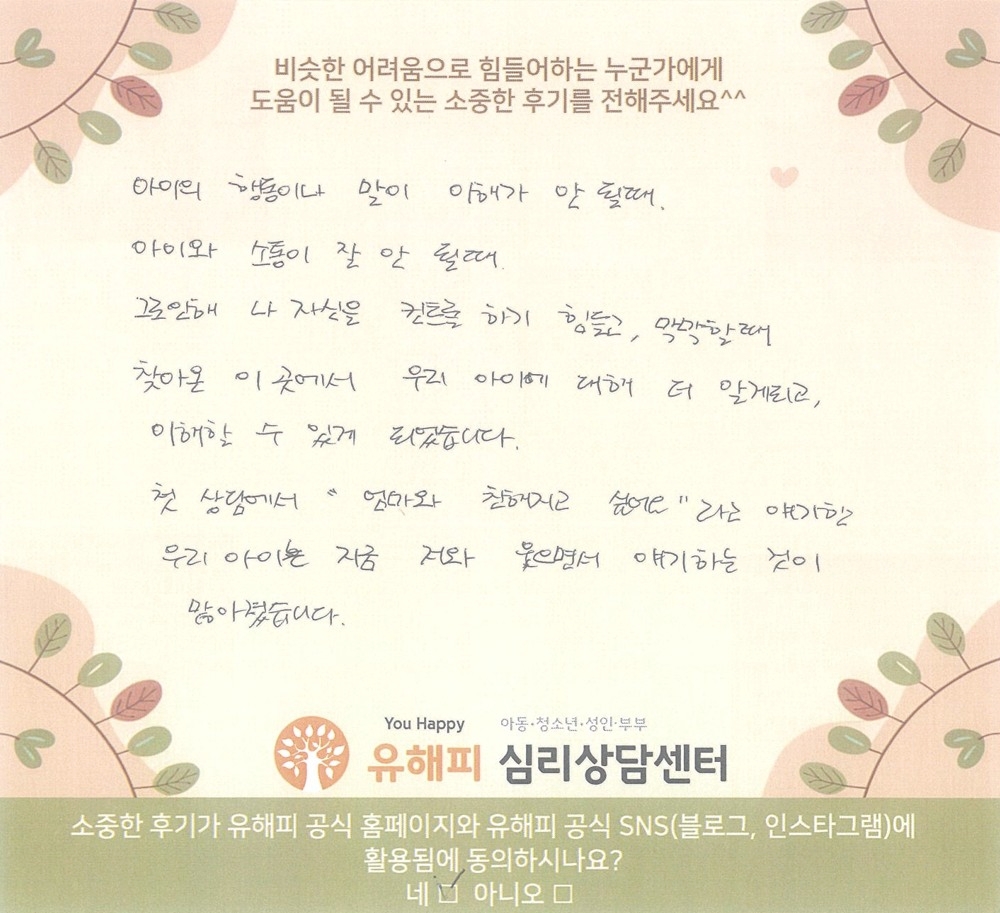 비슷한 어려움으로 힘들어하는 누군가에게
도움이 될 수 있는 소중한 후기를 전해주세요^^
아이의 행동이나 말이 이해가 안 될때.
아이와 소통이 잘 안 될때.
그로인해 나 자신을 컨트롤 하기 힘들고, 막막할때
찾아온 이 곳에서 우리 아이에 대해 더 알게되고,
이해할 수 있게 되었습니다.
첫 상담에서 "엄마와 친해지고 싶어요" 라는 얘기한
우리 아이는 지금 저와 웃으면서 얘기하는 것이
많아졌습니다.
You Happy 아동·청소년·성인·부부
유해피 심리상담센터
소중한 후기가 유해피 공식 홈페이지와 유해피 공식 SNS(블로그, 인스타그램)에
활용됨에 동의하시나요?
네 ☑ 아니오 □